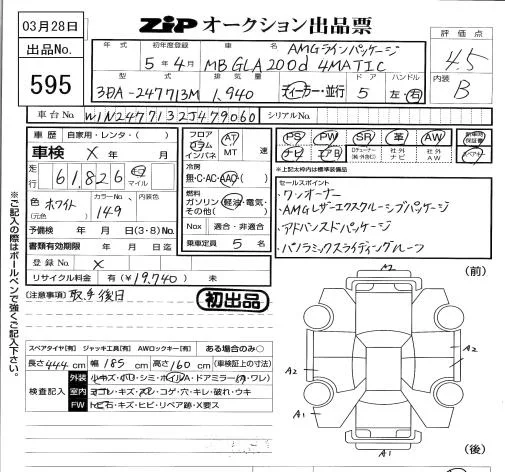 03月28日
ZIP オークション出品票
出品No.
595
年式 初年度登録 車名 AMGラインパッケージ
5年4月 MB GLA200d 4MATIC
評価点
4.5
内装
B
型式 排気量 ドア ハンドル
3DA-247713M 1,940 ディーラー・並行 5 左・右
車台No. W1N2477132J479060 シリアルNo.
車歴 自家用・レンタ・( )
車検 X年 月
走行 61,826 キロ マイル
色 ホワイト (元色) カラーNo. 149 内装色
予備検 年 月 日(3・8)No.
書類有効期限 年 月 日
登録No. X
リサイクル料金 有(¥19,740) 未
フロア コラム インパネ AT MT 速
冷房
無・C・AC・AAC
燃料
ガソリン・軽油・電気・
その他( )
Nox 適合・非適合
乗車定員 5 名
PS PW SR 革 AW
ナビ エアB 社外ナビ 社外AW
新車時保証書
*上記太枠内は標準装備品
セールスポイント
・ワンオーナー
・AMGレザーエクスクルーシブパッケージ
・アドバンスドパッケージ
・パノラミックスライディングルーフ
※ご記入の際はボールペンで強くご記入下さい。
(注意事項) 取予後日
初出品
スペアタイヤ[有] ジャッキ工具[有] AWロックキー[有] ある場合のみ○
長さ444cm 幅185cm 高さ160cm (車検証上の寸法)
検査記入
外装 小キズ・小凹・シミ・ホイルA・ドアミラー(A・ワレ)
室内 ヨゴレ・キズ・スレ・コゲ・穴・キレ・破れ・ウキ
FW トビ石・キズ・ヒビ・リペア跡・X要ス
(前)
A2
A2
A2
A2
A1
A1
(後)